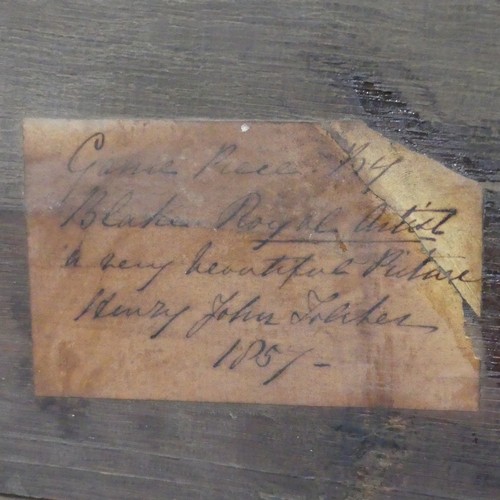 Game Piece by
Blake Royal Artist
a very beautiful Picture
Henry John
1857-